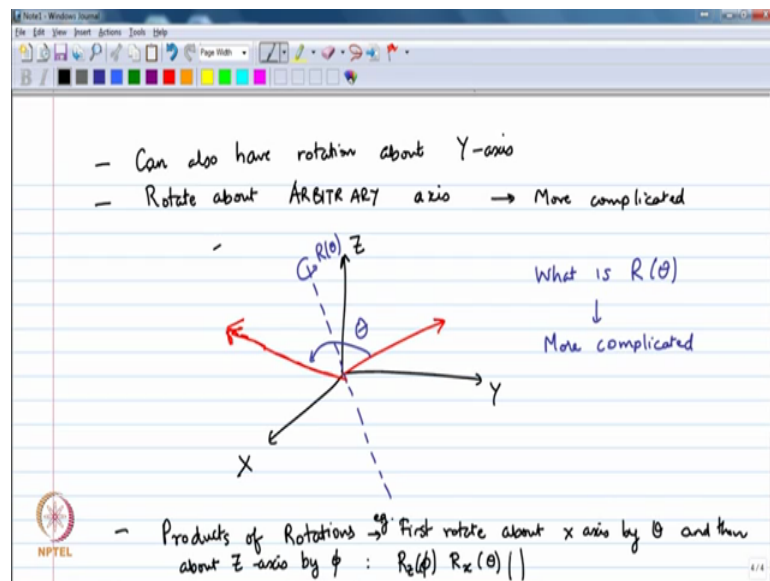 Note1 - Windows Journal
File Edit View Insert Actions Tools Help
Page Width
B I
— Can also have rotation about Y-axis
— Rotate about ARBITRARY axis → More complicated
R(θ) Z
What is R(θ)
θ
↓
More complicated
Y
X
— Products of Rotations → eg. First rotate about x axis by θ and then
about Z-axis by ϕ : R_z(ϕ) R_x(θ) ( )
NPTEL
4/4